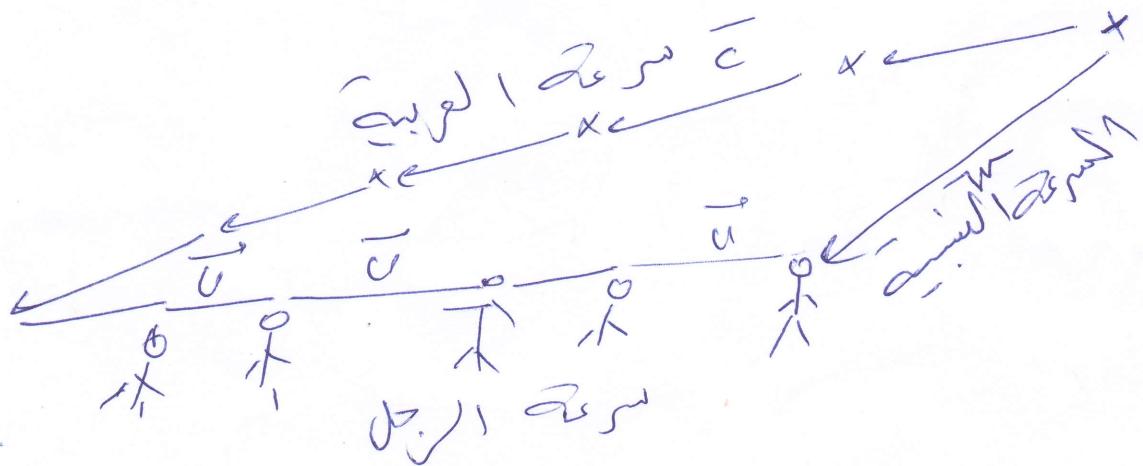 سرعة العربية c
السرعة النسبية
u
u
u
سرعة الرجل